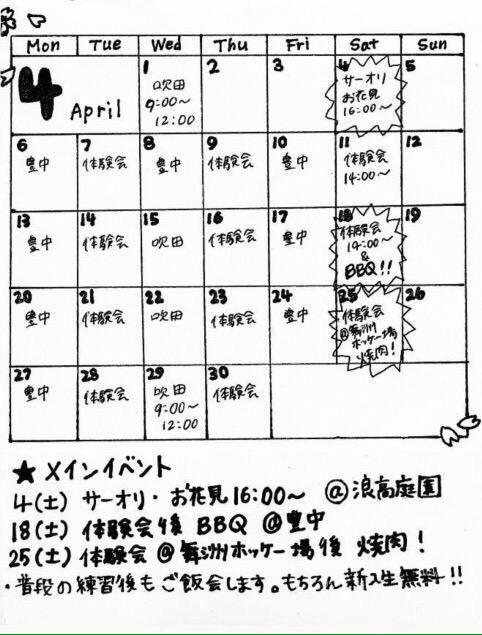 Mon Tue Wed Thu Fri Sat Sun
4 April
1 吹田 9:00〜 12:00
2
3
4 サーオリ お花見 16:00〜
5
6 豊中
7 体験会
8 豊中
9 体験会
10 豊中
11 体験会 14:00〜
12
13 豊中
14 体験会
15 吹田
16 体験会
17 豊中
18 体験会 14:00〜 & BBQ!!
19
20 豊中
21 体験会
22 吹田
23 体験会
24 豊中
25 体験会 @舞洲 ホッケー場 焼肉!
26
27 豊中
28 体験会
29 吹田 9:00〜 12:00
30 体験会
★メインイベント
4(土) サーオリ・お花見16:00〜 @浪高庭園
18(土) 体験会後 BBQ @豊中
25(土) 体験会 @舞洲ホッケー場後 焼肉!
・普段の練習後もご飯会します。もちろん新入生無料!!